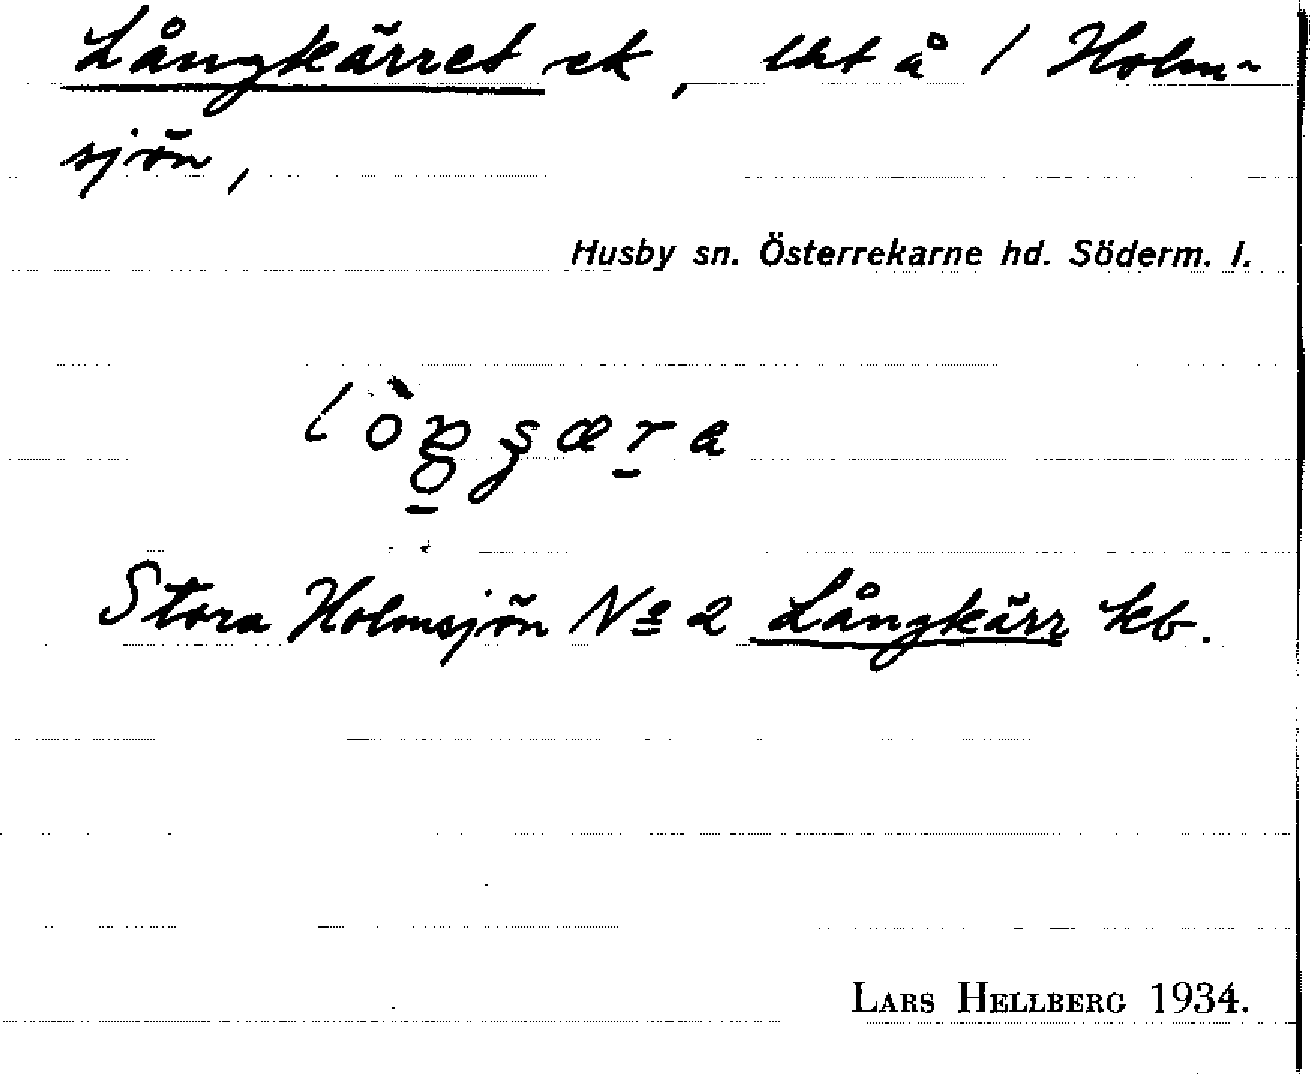 Långkärret ek, lht å 1 Holm-
sjön,
Husby sn. Österrekarne hd. Söderm. l.
Stora Holmsjön No 2 Långkärr kb.
LARS HELLBERG 1934.